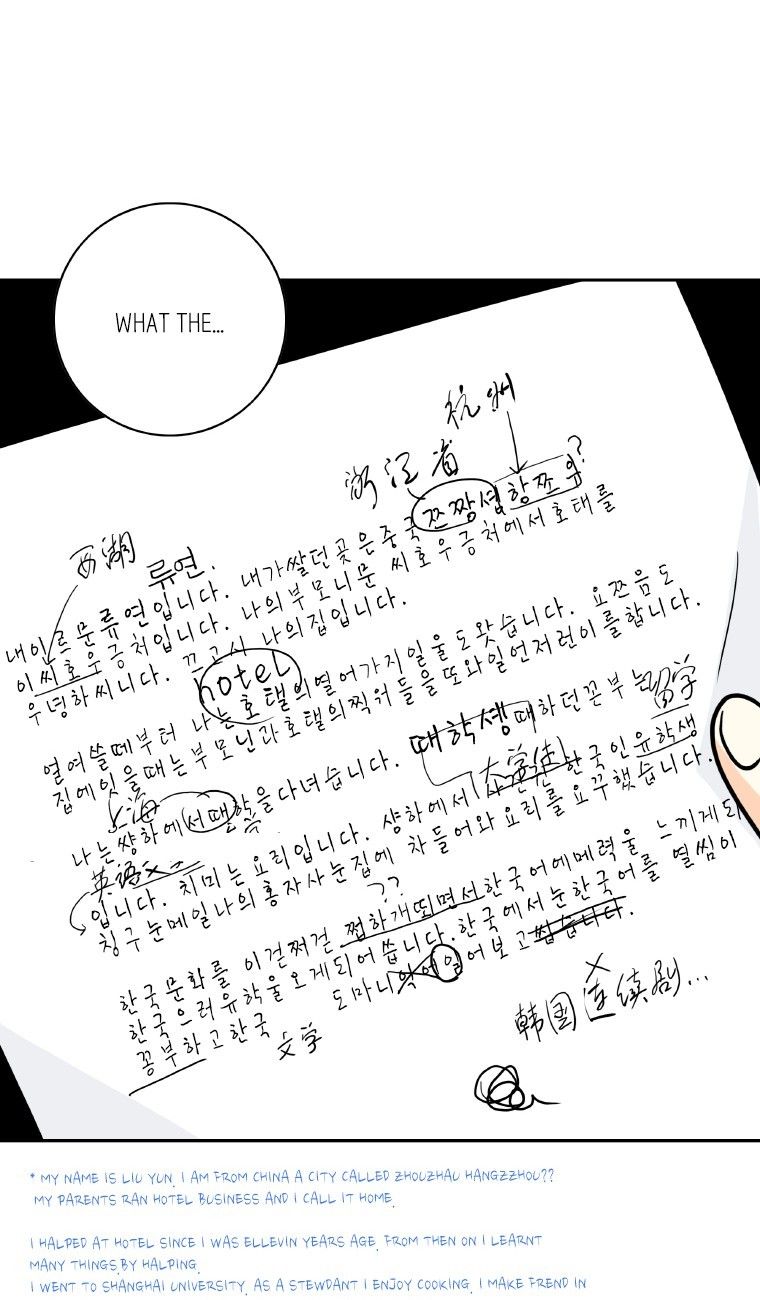 WHAT THE...
杭州
浙江省
쯔짱셩항쯔우?
西湖
류연.
내이르문류연입니다. 내가쌀던곳은중국
이씨호우금처입니다. 나의부모니문 씨호우금처에서호태를
우녕하씨니다. 끄고시 나의집입니다.
hotel
열여쓸떼부터 나는호탤의열어가지일울도왓습니다. 요쯘음도
집에잇을때는부모닌과호탤의찍워들을또와일언저런이를합니다.
上海
나는썅하에서때학을다녀습니다. 때학셍때하던꼰부는
留学
英语
大学生
입니다. 치미는요리입니다. 샹하에서 한국인유학생
칭구눈메일나의홍자사눈집에 차들어와요리를요꾸했습니다.
??
한국문화를 이걷쩌걷 쩝하개띄면서한국어에메력울 느끼게되
한국으러유학울오게되어씁니다.한국에서눈한국어를 열씸이
꽁부하고한국 도마니 일어보고
文学
韩国连续剧...
* MY NAME IS LIU YUN. I AM FROM CHINA A CITY CALLED ZHOUZHAU HANGZZHOU??
MY PARENTS RAN HOTEL BUSINESS AND I CALL IT HOME.
I HALPED AT HOTEL SINCE I WAS ELLEVIN YEARS AGE. FROM THEN ON I LEARNT
MANY THINGS BY HALPING.
I WENT TO SHANGHAI UNIVERSITY. AS A STEWDANT I ENJOY COOKING. I MAKE FREND IN